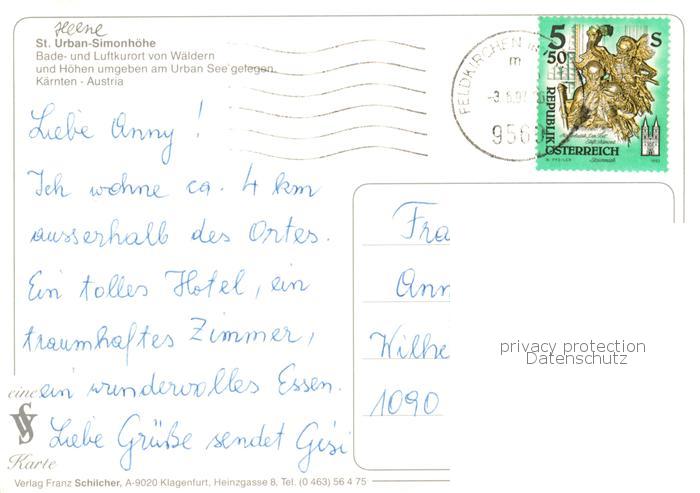 St. Urban-Simonhöhe
Bade- und Luftkurort von Wäldern
und Höhen umgeben am Urban See gelegen.
Kärnten - Austria
FELDKIRCHEN
9560
5 50 S
REPUBLIK
ÖSTERREICH
Liebe Anny!
Ich wohne ca. 4 km
ausserhalb des Ortes.
Ein tolles Hotel, ein
traumhaftes Zimmer,
ein wundervolles Essen.
Liebe Grüße sendet Gisi
Fra
Ann
Wilhe
1090
privacy protection
Datenschutz
eine
VS
Karte
Verlag Franz Schilcher, A-9020 Klagenfurt, Heinzgasse 8, Tel. (0 463) 56 4 75